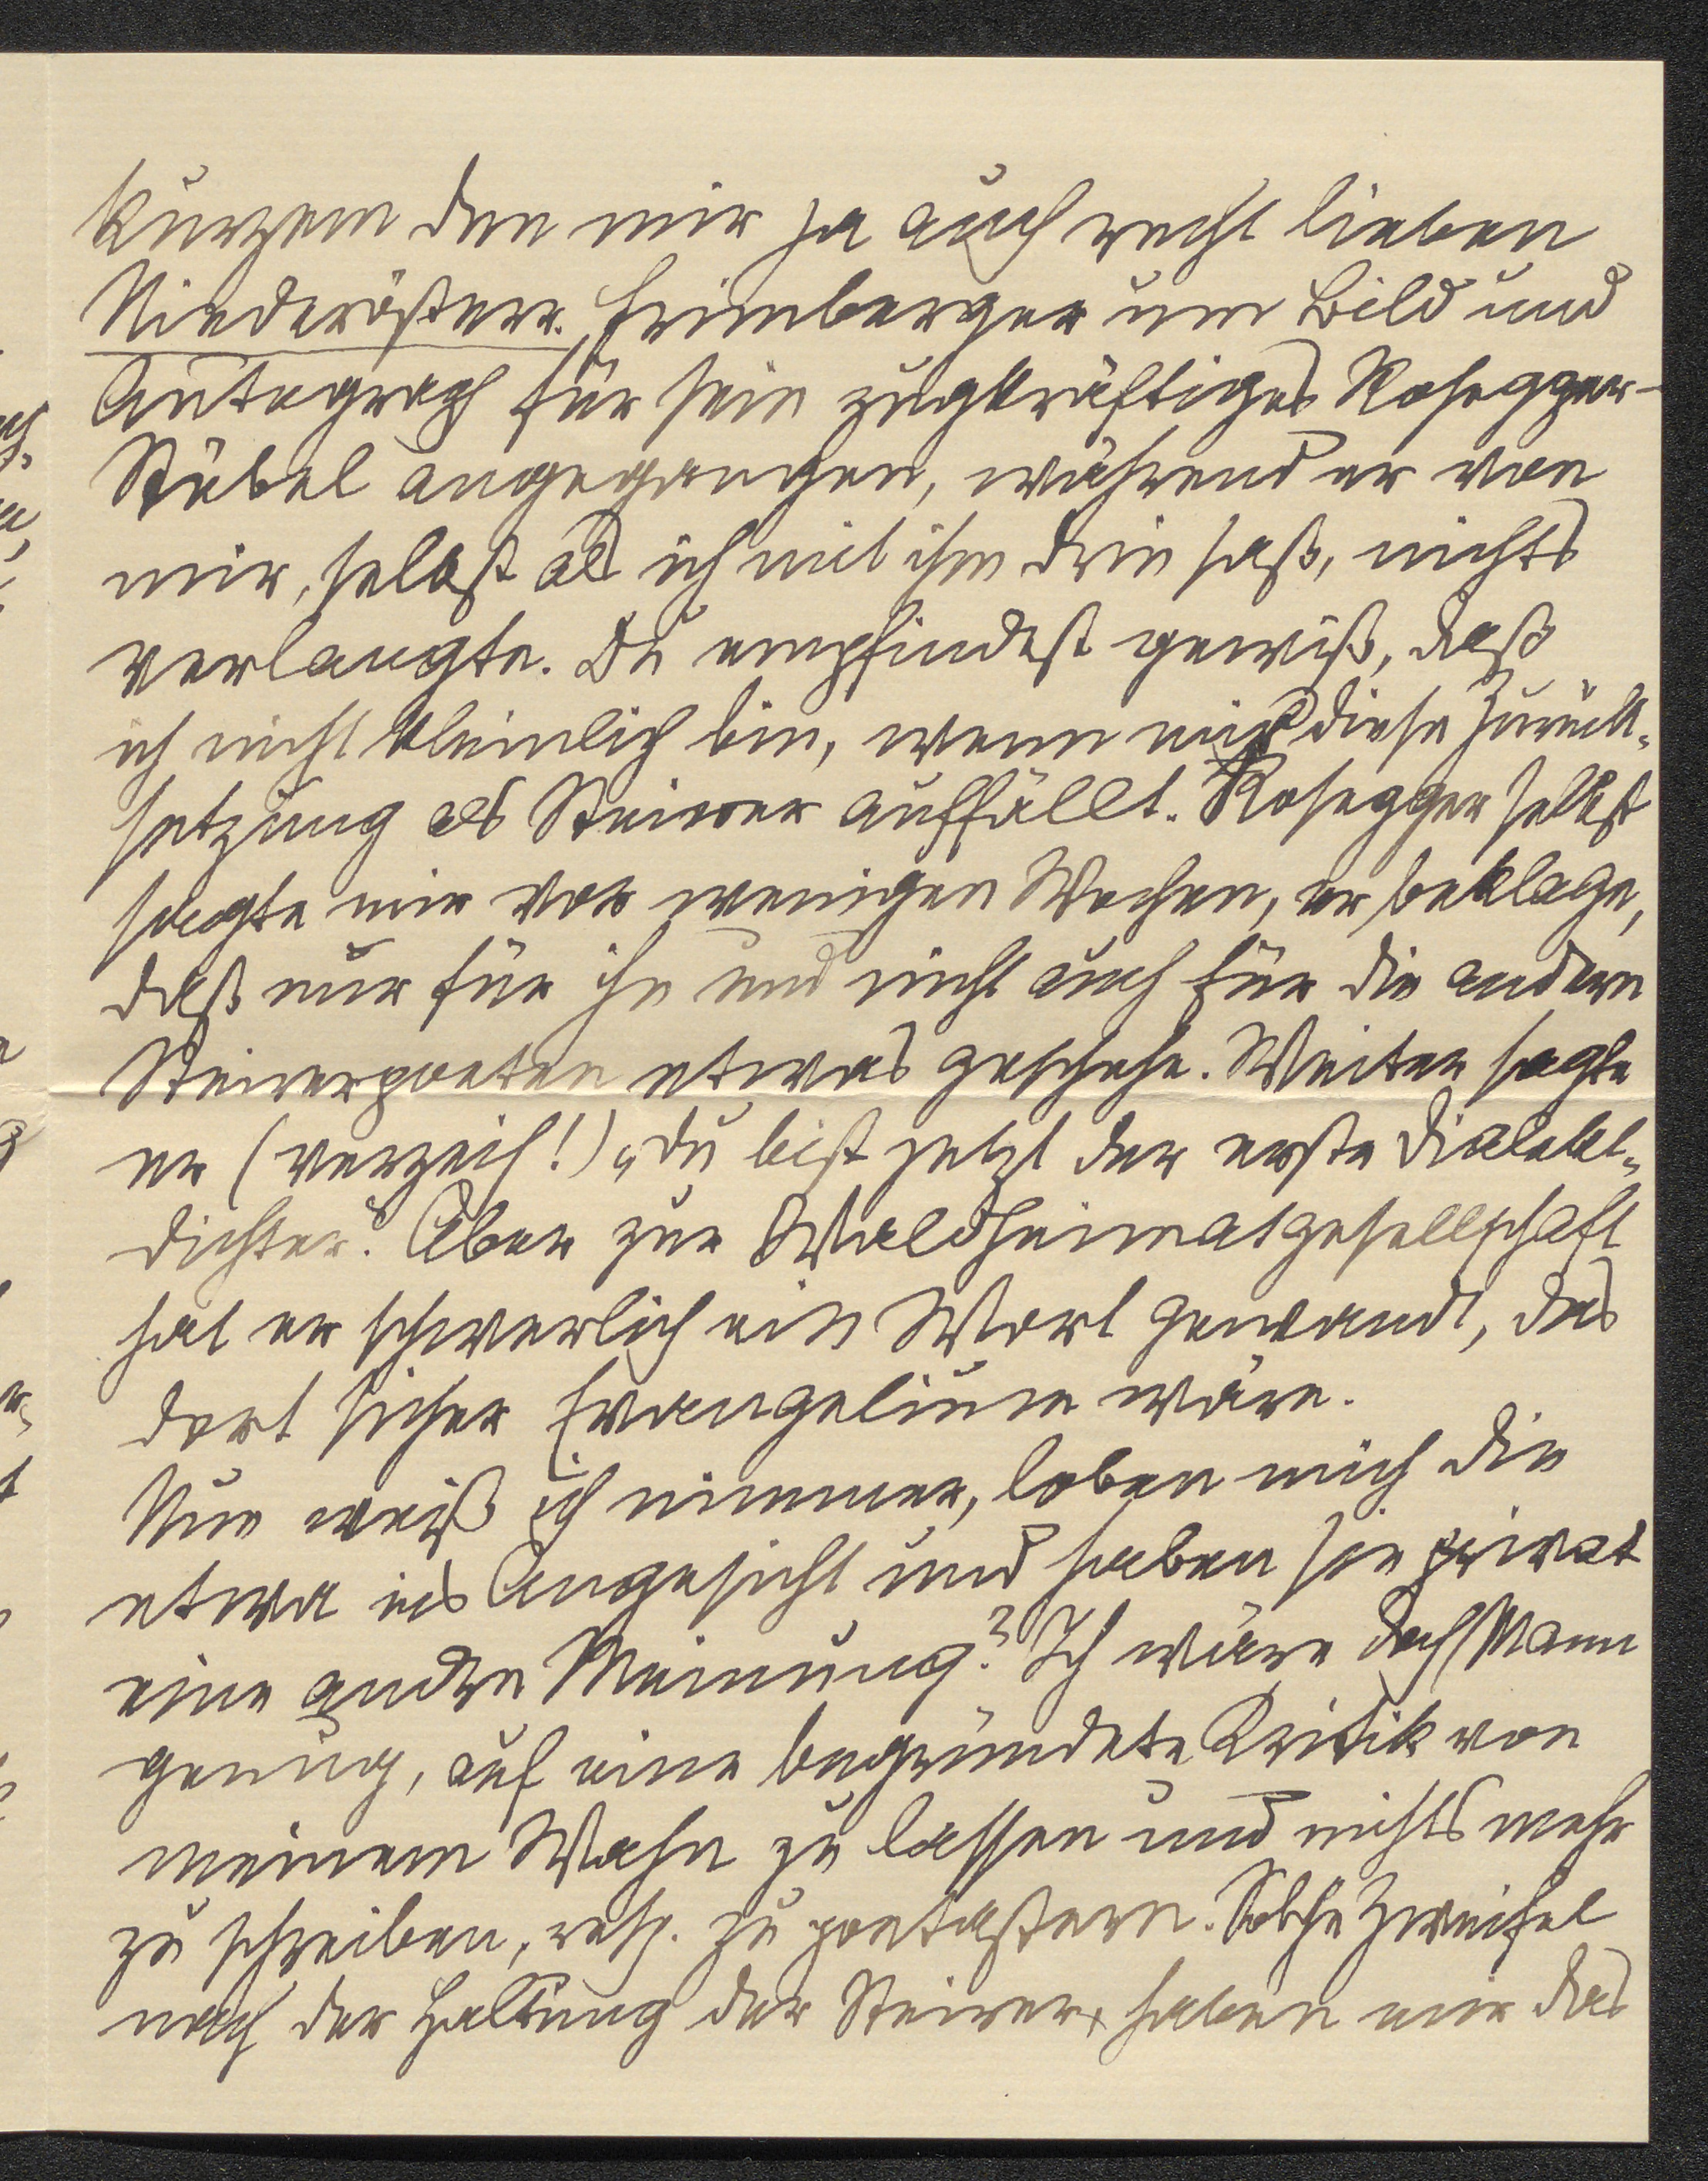 kurzem den mir ja auch recht lieben
Niederösterr. Frimberger um Bild und
Autograph für sein zugkräftiges Rosegger-
Stübel angegangen, während er von
mir, selbst als ich mit ihm drin saß, nichts
verlangte. Du empfindest gewiß, daß
ich nicht kleinlich bin, wenn mir diese Zurück-
setzung als Steirer auffällt. Rosegger selbst
sagte mir vor wenigen Wochen, er beklage,
daß nur für ihn und nicht auch für die andern
Steirerpoeten etwas geschehe. Weiter sagte
er (verzeih!) „du bist jetzt der erste Dialekt-
dichter“. Aber zur Waldheimatgesellschaft
hat er schwerlich ein Wort gewandt, das
dort sicher Evangelium wäre.
Nun weiß ich nimmer, loben mich die
etwa ins Angesicht und haben sie privat
eine andre Meinung? Ich wäre doch Mann
genug, auf eine begründete Kritik von
meinem Wahn zu lassen und nichts mehr
zu schreiben, resp. zu poetastern. Solche Zweifel
nach der Haltung der Steirer haben mir das